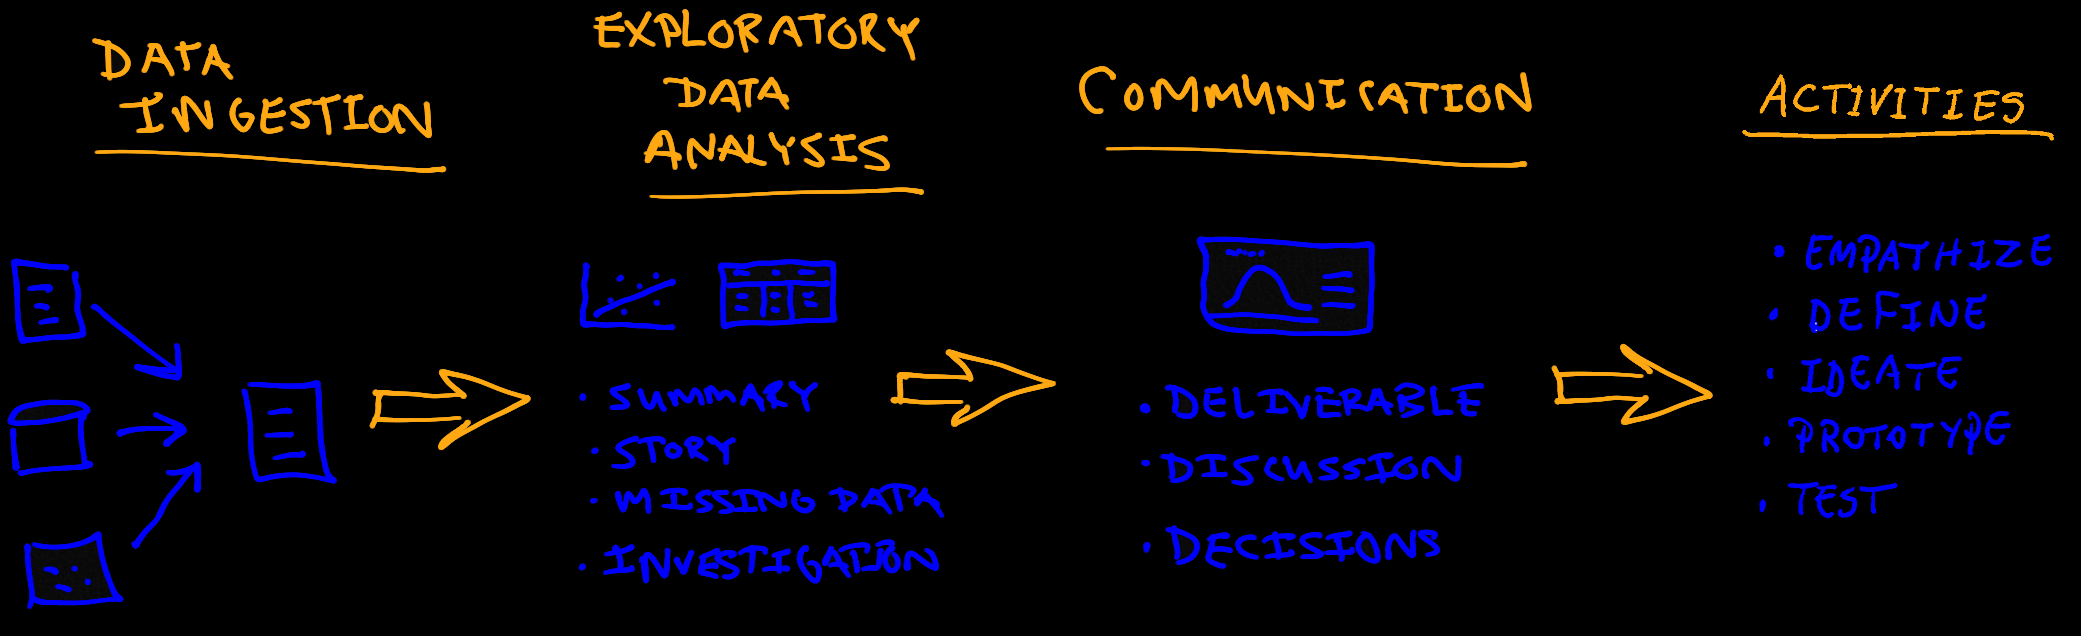 DATA
INGESTION
EXPLORATORY
DATA
ANALYSIS
· SUMMARY
· STORY
· MISSING DATA
· INVESTIGATION
COMMUNICATION
· DELIVERABLE
· DISCUSSION
· DECISIONS
ACTIVITIES
· EMPATHIZE
· DEFINE
· IDEATE
· PROTOTYPE
· TEST